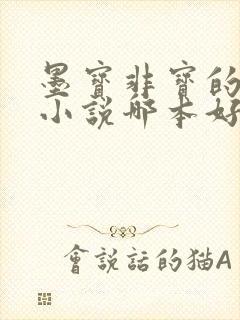 墨寶非寶的
小說哪本好
會說話的猫A